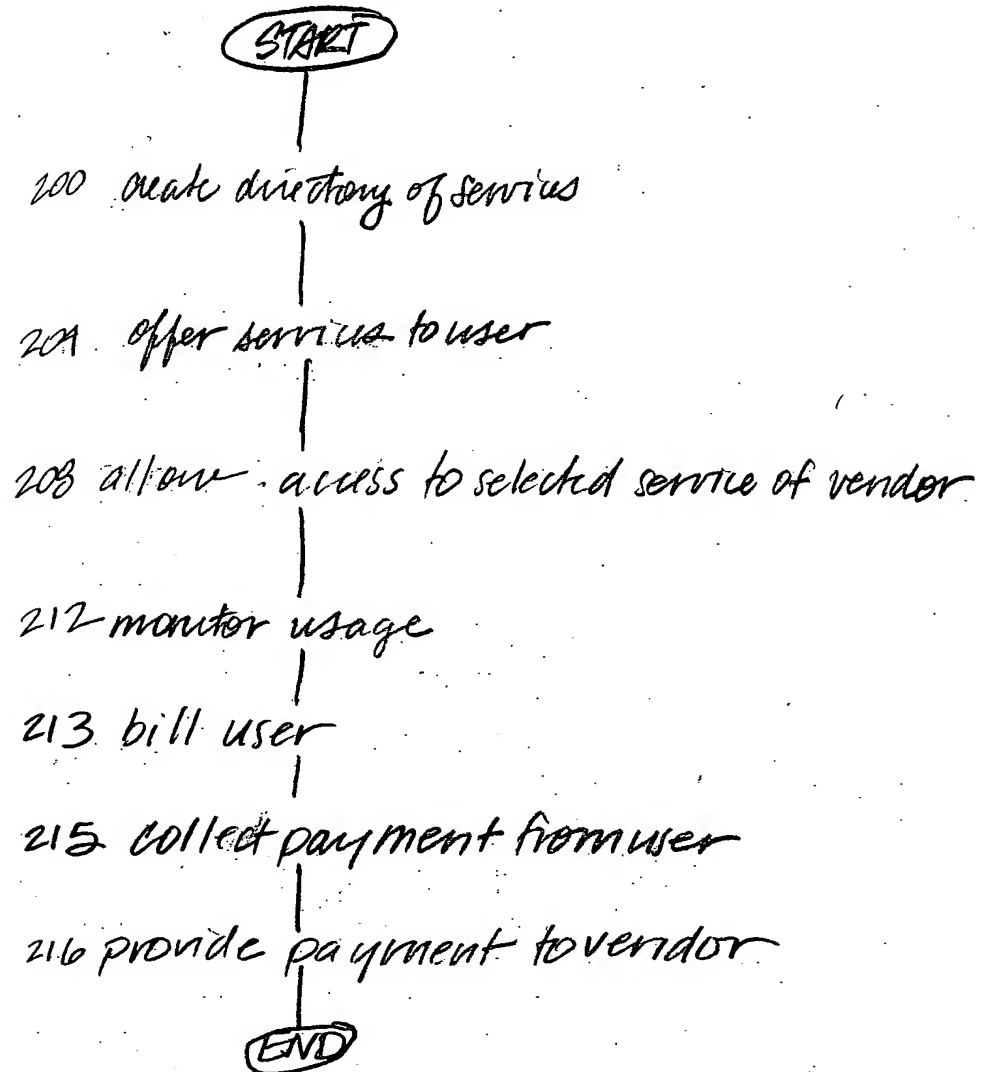 START
200 create directory of services
204 offer services to user
208 allow access to selected service of vendor
212 monitor usage
213 bill user
215 collect payment from user
216 provide payment to vendor
END